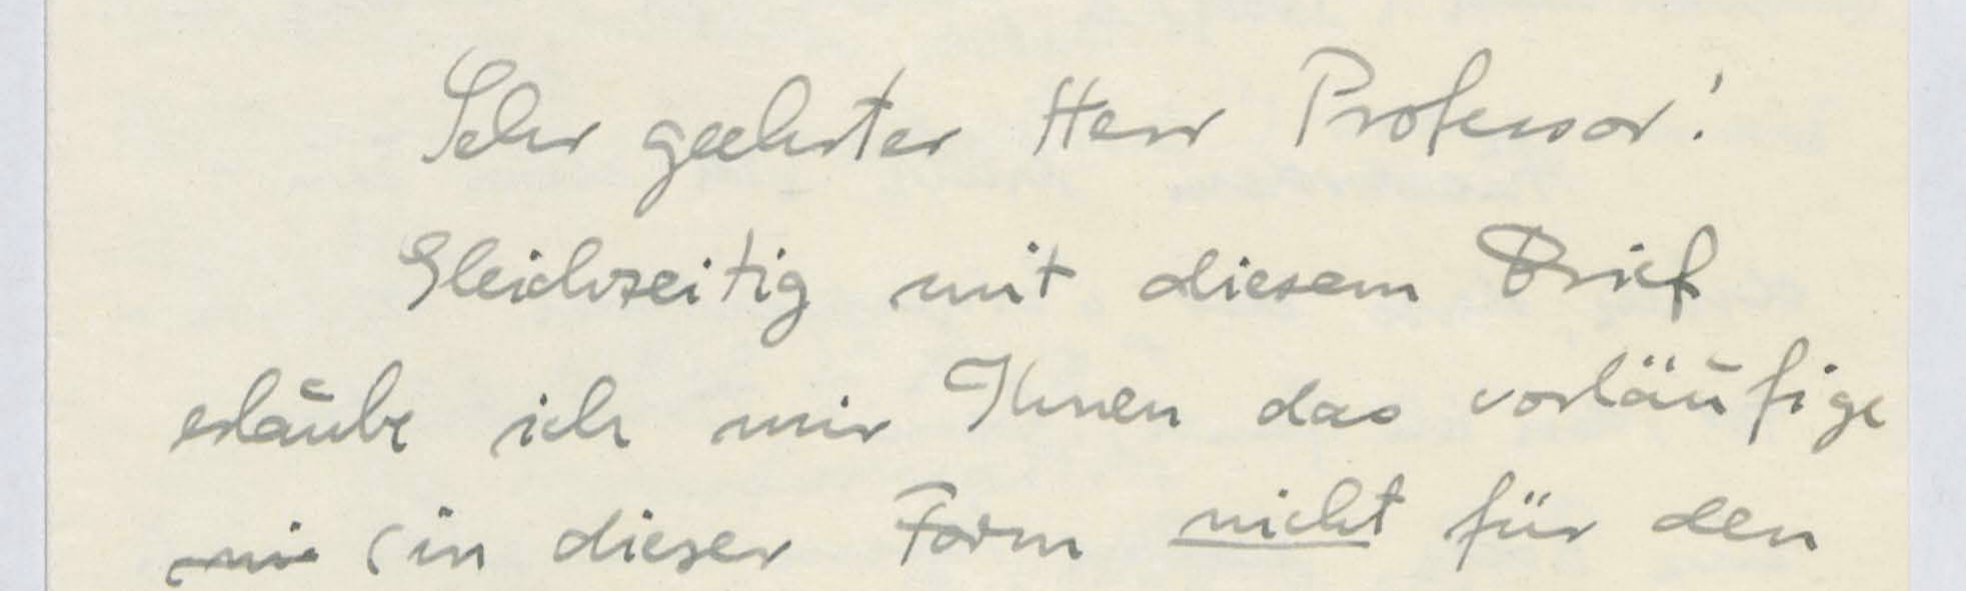 Sehr geehrter Herr Professor!
Gleichzeitig mit diesem Brief
erlaube ich mir Ihnen das vorläufige
(in dieser Form nicht für den